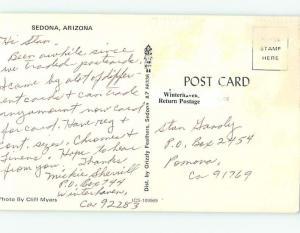 SEDONA, ARIZONA
Hi Stan.
Been awhile since
we traded postcards.
I came by a lot of differ-
ent cards & can trade
any amount now card
for card. Have reg &
cont. sizes. Chromes &
Linens. Hope to hear
from you. Thanks,
Mickie Sherrill
P.O. Box 744
Winterhaven,
Ca 92283
Photo By Cliff Myers
Dist. by Grizzly Feathers, Sedona AZ 86336
POST CARD
STAMP
HERE
Winterhaven,
Return Postage
Stan
P.O. Box 2454
Pomona,
Ca 91769